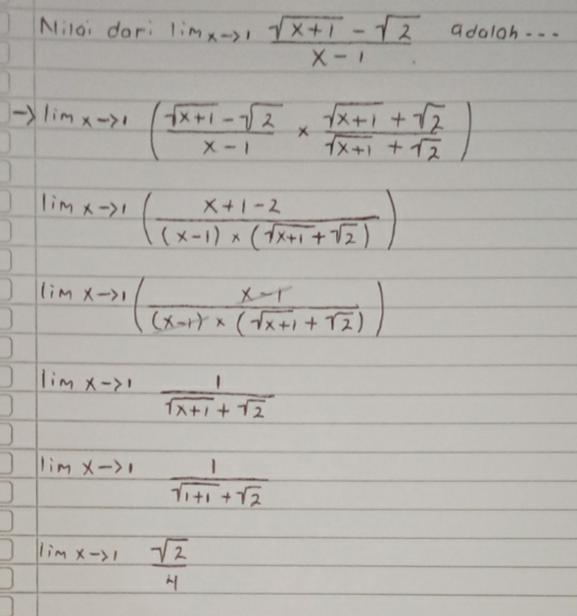 Nilai dari lim x→1 (√(x+1) - √2)/(x - 1) adalah ---
→ lim x→1 ( (√(x+1) - √2)/(x - 1) × (√(x+1) + √2)/(√(x+1) + √2) )
lim x→1 ( (x+1-2)/((x-1) × (√(x+1) + √2)) )
lim x→1 ( (x-1)/((x-1) × (√(x+1) + √2)) )
lim x→1 1/(√(x+1) + √2)
lim x→1 1/(√(1+1) + √2)
lim x→1 √2/4